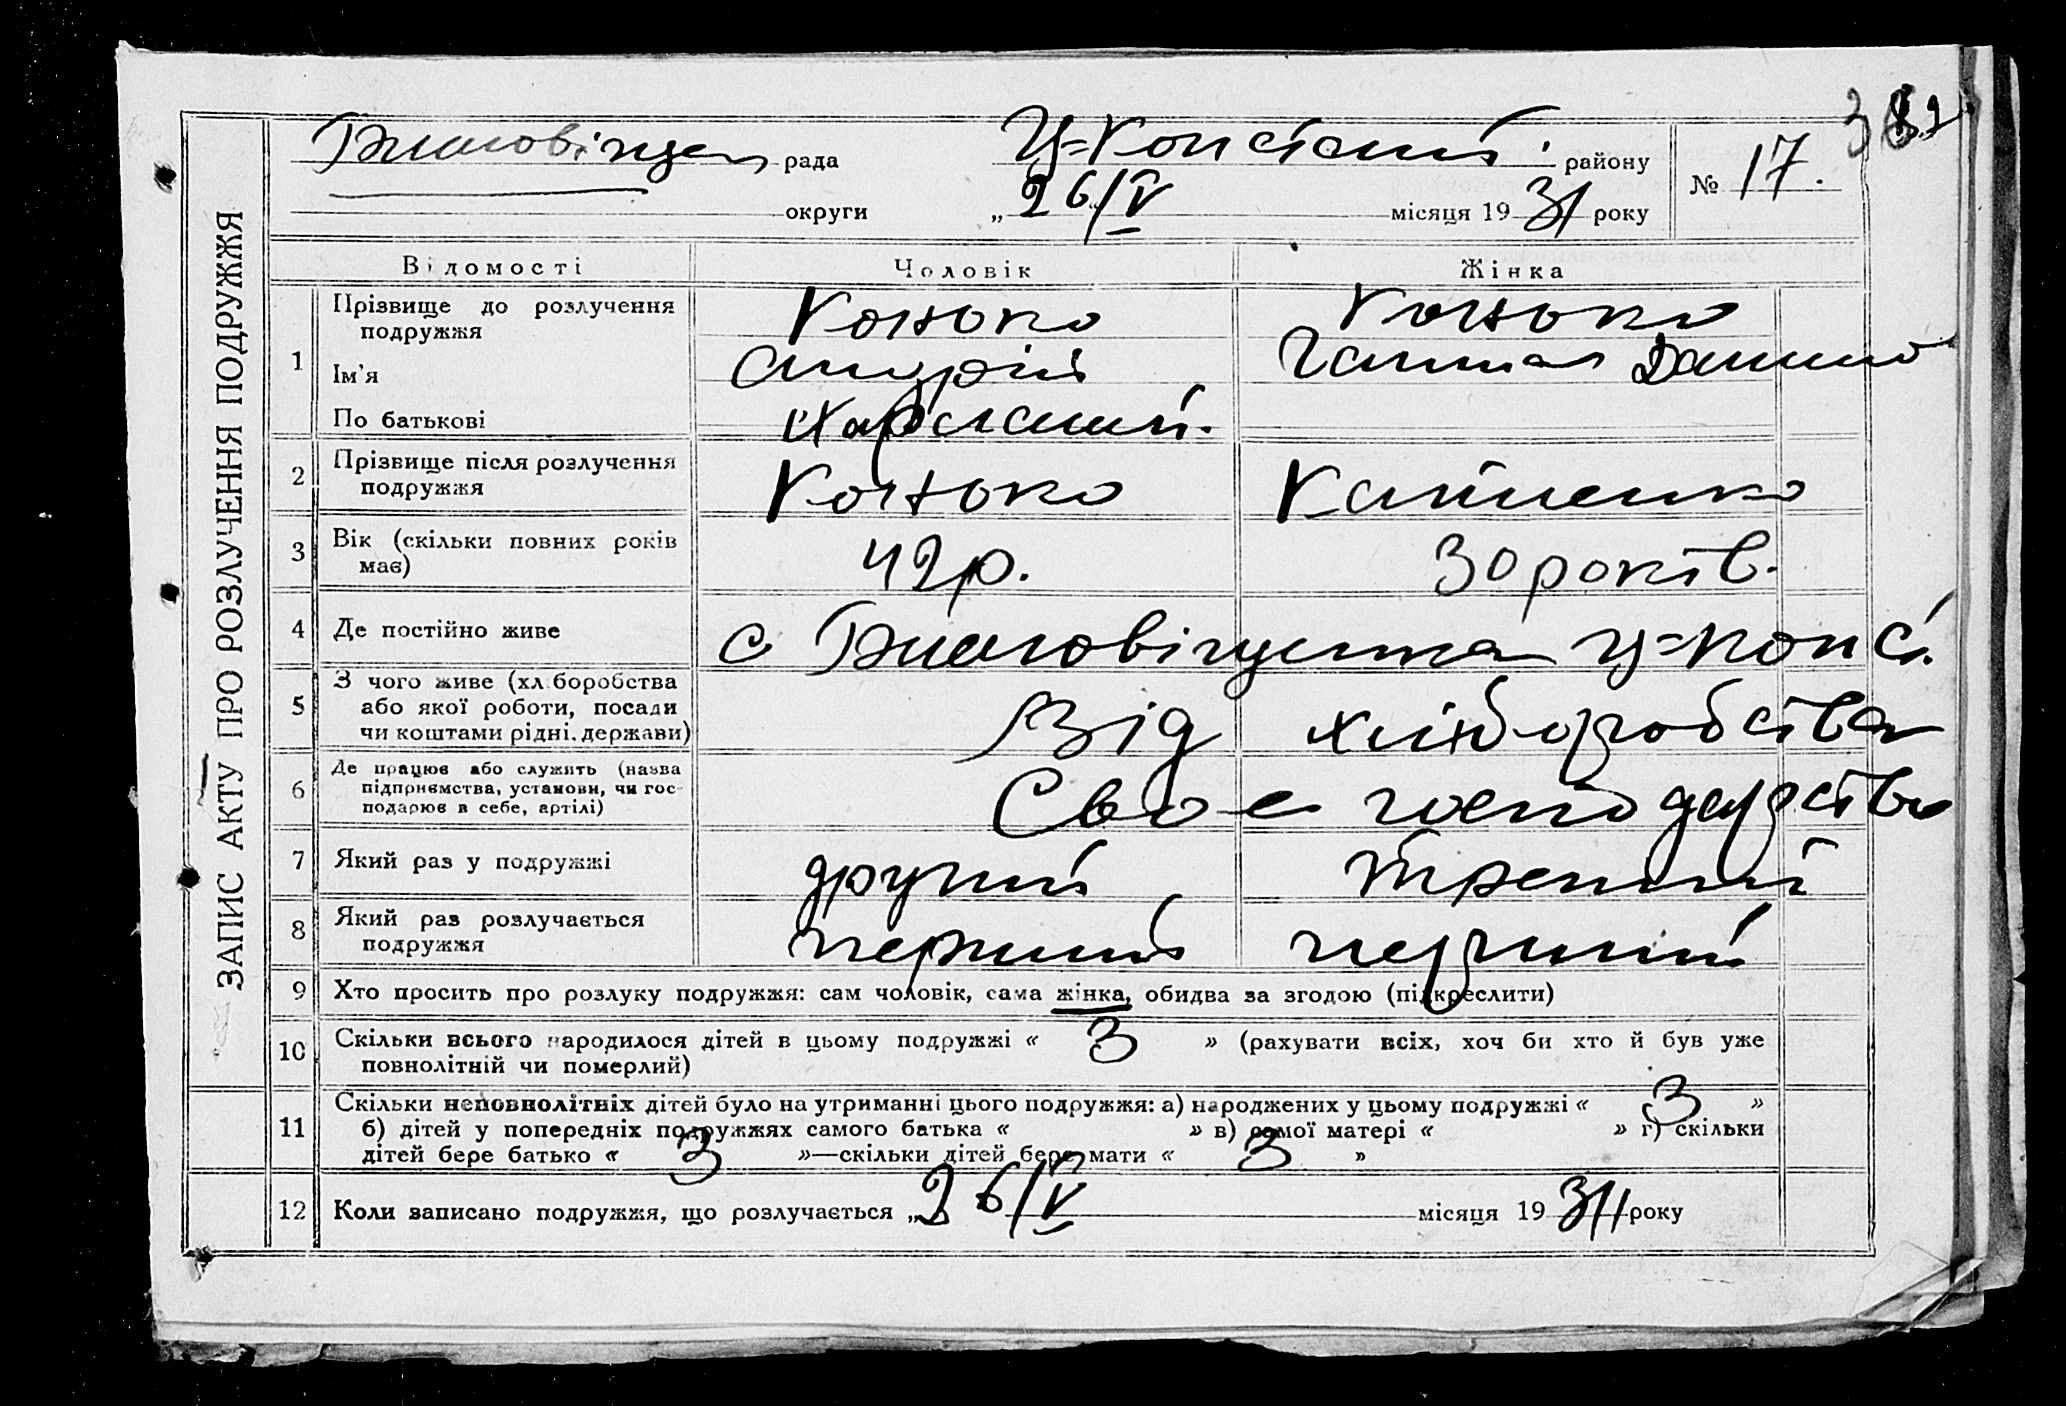 Благовіщен рада Ц=Констант. району № 17.
округи „ 26/V місяця 1931 року
ЗАПИС АКТУ ПРО РОЗЛУЧЕННЯ ПОДРУЖЖЯ
Відомості Чоловік Жінка
1 Прізвище до розлучення
подружжя Конько Конько
Ім'я Андрій Ганна Данило
По батькові
2 Прізвище після розлучення
подружжя Конько
3 Вік (скільки повних років
має) 42р. 30 років.
4 Де постійно живе с Благовіщенка Ц=Конст.
5 З чого живе (хліборобства
або якої роботи, посади
чи коштами рідні, держави) Від хліборобства
6 Де працює або служить (назва
підприємства, установи, чи гос-
подарює в себе, артілі) Своє господарство
7 Який раз у подружжі другий третій
8 Який раз розлучається
подружжя перший перший
9 Хто просить про розлуку подружжя: сам чоловік, сама жінка, обидва за згодою (підкреслити)
10 Скільки всього народилося дітей в цьому подружжі « 3 » (рахувати всіх, хоч би хто й був уже
повнолітній чи померлий)
11 Скільки неповнолітніх дітей було на утриманні цього подружжя: а) народжених у цьому подружжі « 3 »
б) дітей у попередніх подружжях самого батька « » в) самої матері « » г) скільки
дітей бере батько « 3 »—скільки дітей бере мати « 3 »
12 Коли записано подружжя, що розлучається „ 26/V місяця 1931 року